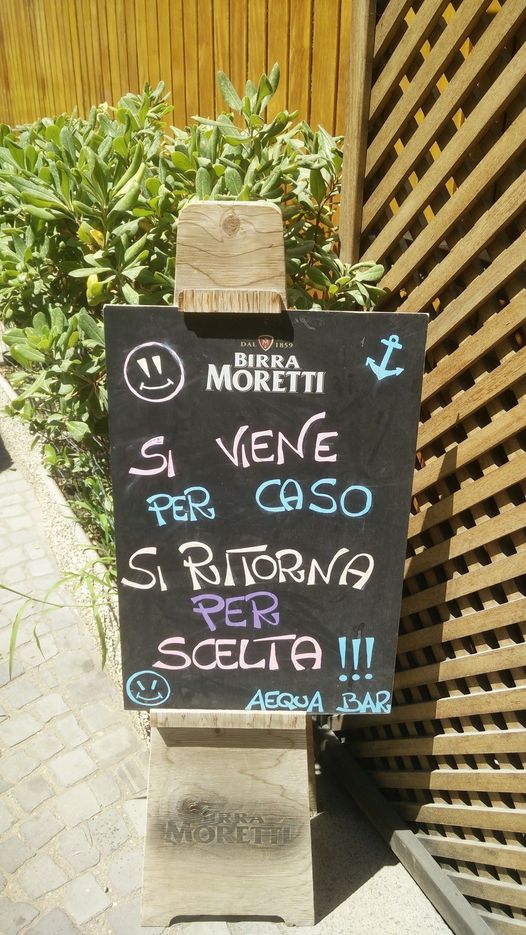 DAL M 1859
BIRRA
MORETTI
SI VIENE
PER CASO
SI RITORNA
PER
SCELTA !!!
AEQUA BAR
BIRRA
MORETTI